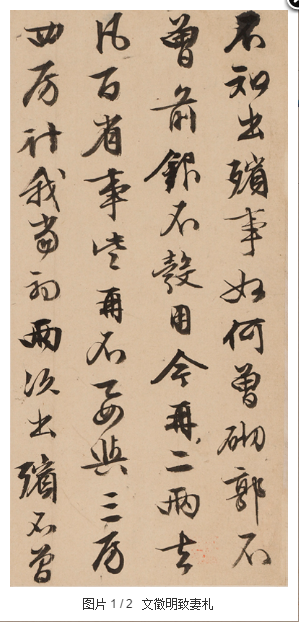 不知出殯事如何曾砌郭不
曾前銀不彀用今再二兩去
凡百省事些再不要與三房
四房計我當初兩次出殯不曾
图片 1 / 2 文徵明致妻札